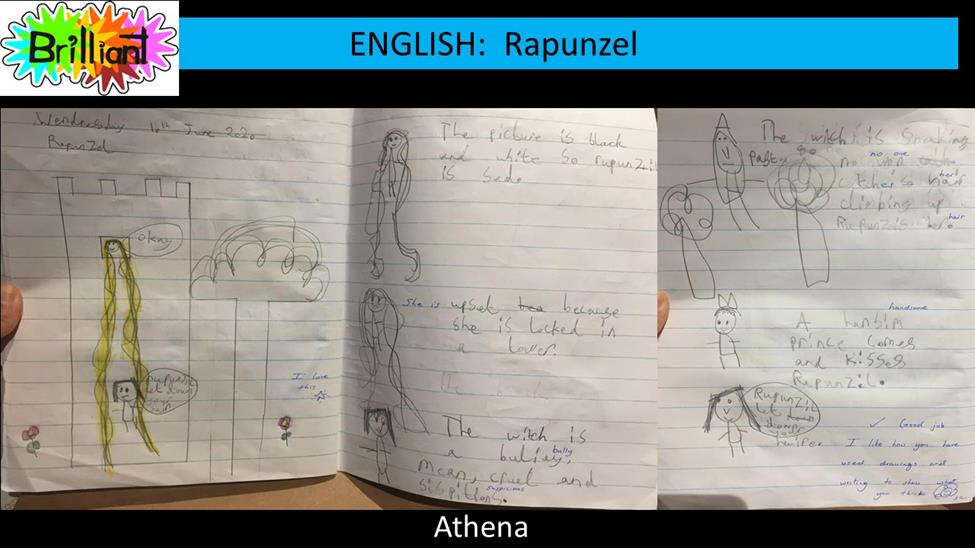 Brilliant
ENGLISH: Rapunzel
Wendnesday 10th June 2020
RapunZel
okay
let down
your
I love
this
The picture is black
and white so rupunzil
is sade
She is upset because
she is locked in
a tower.
The witch is
a buliey, bully
mean, cruel and
sispitions. suspicious
The witch is Sneaking
past so
no one
catches her
climbing up
RupunZis hair
handsome
A hansim
prince comes
and kisses
RepunZil.
RapunZil
let down
your
haire.
✓ Good job
I like how you have
used drawings and
writing to show what
you think
Athena